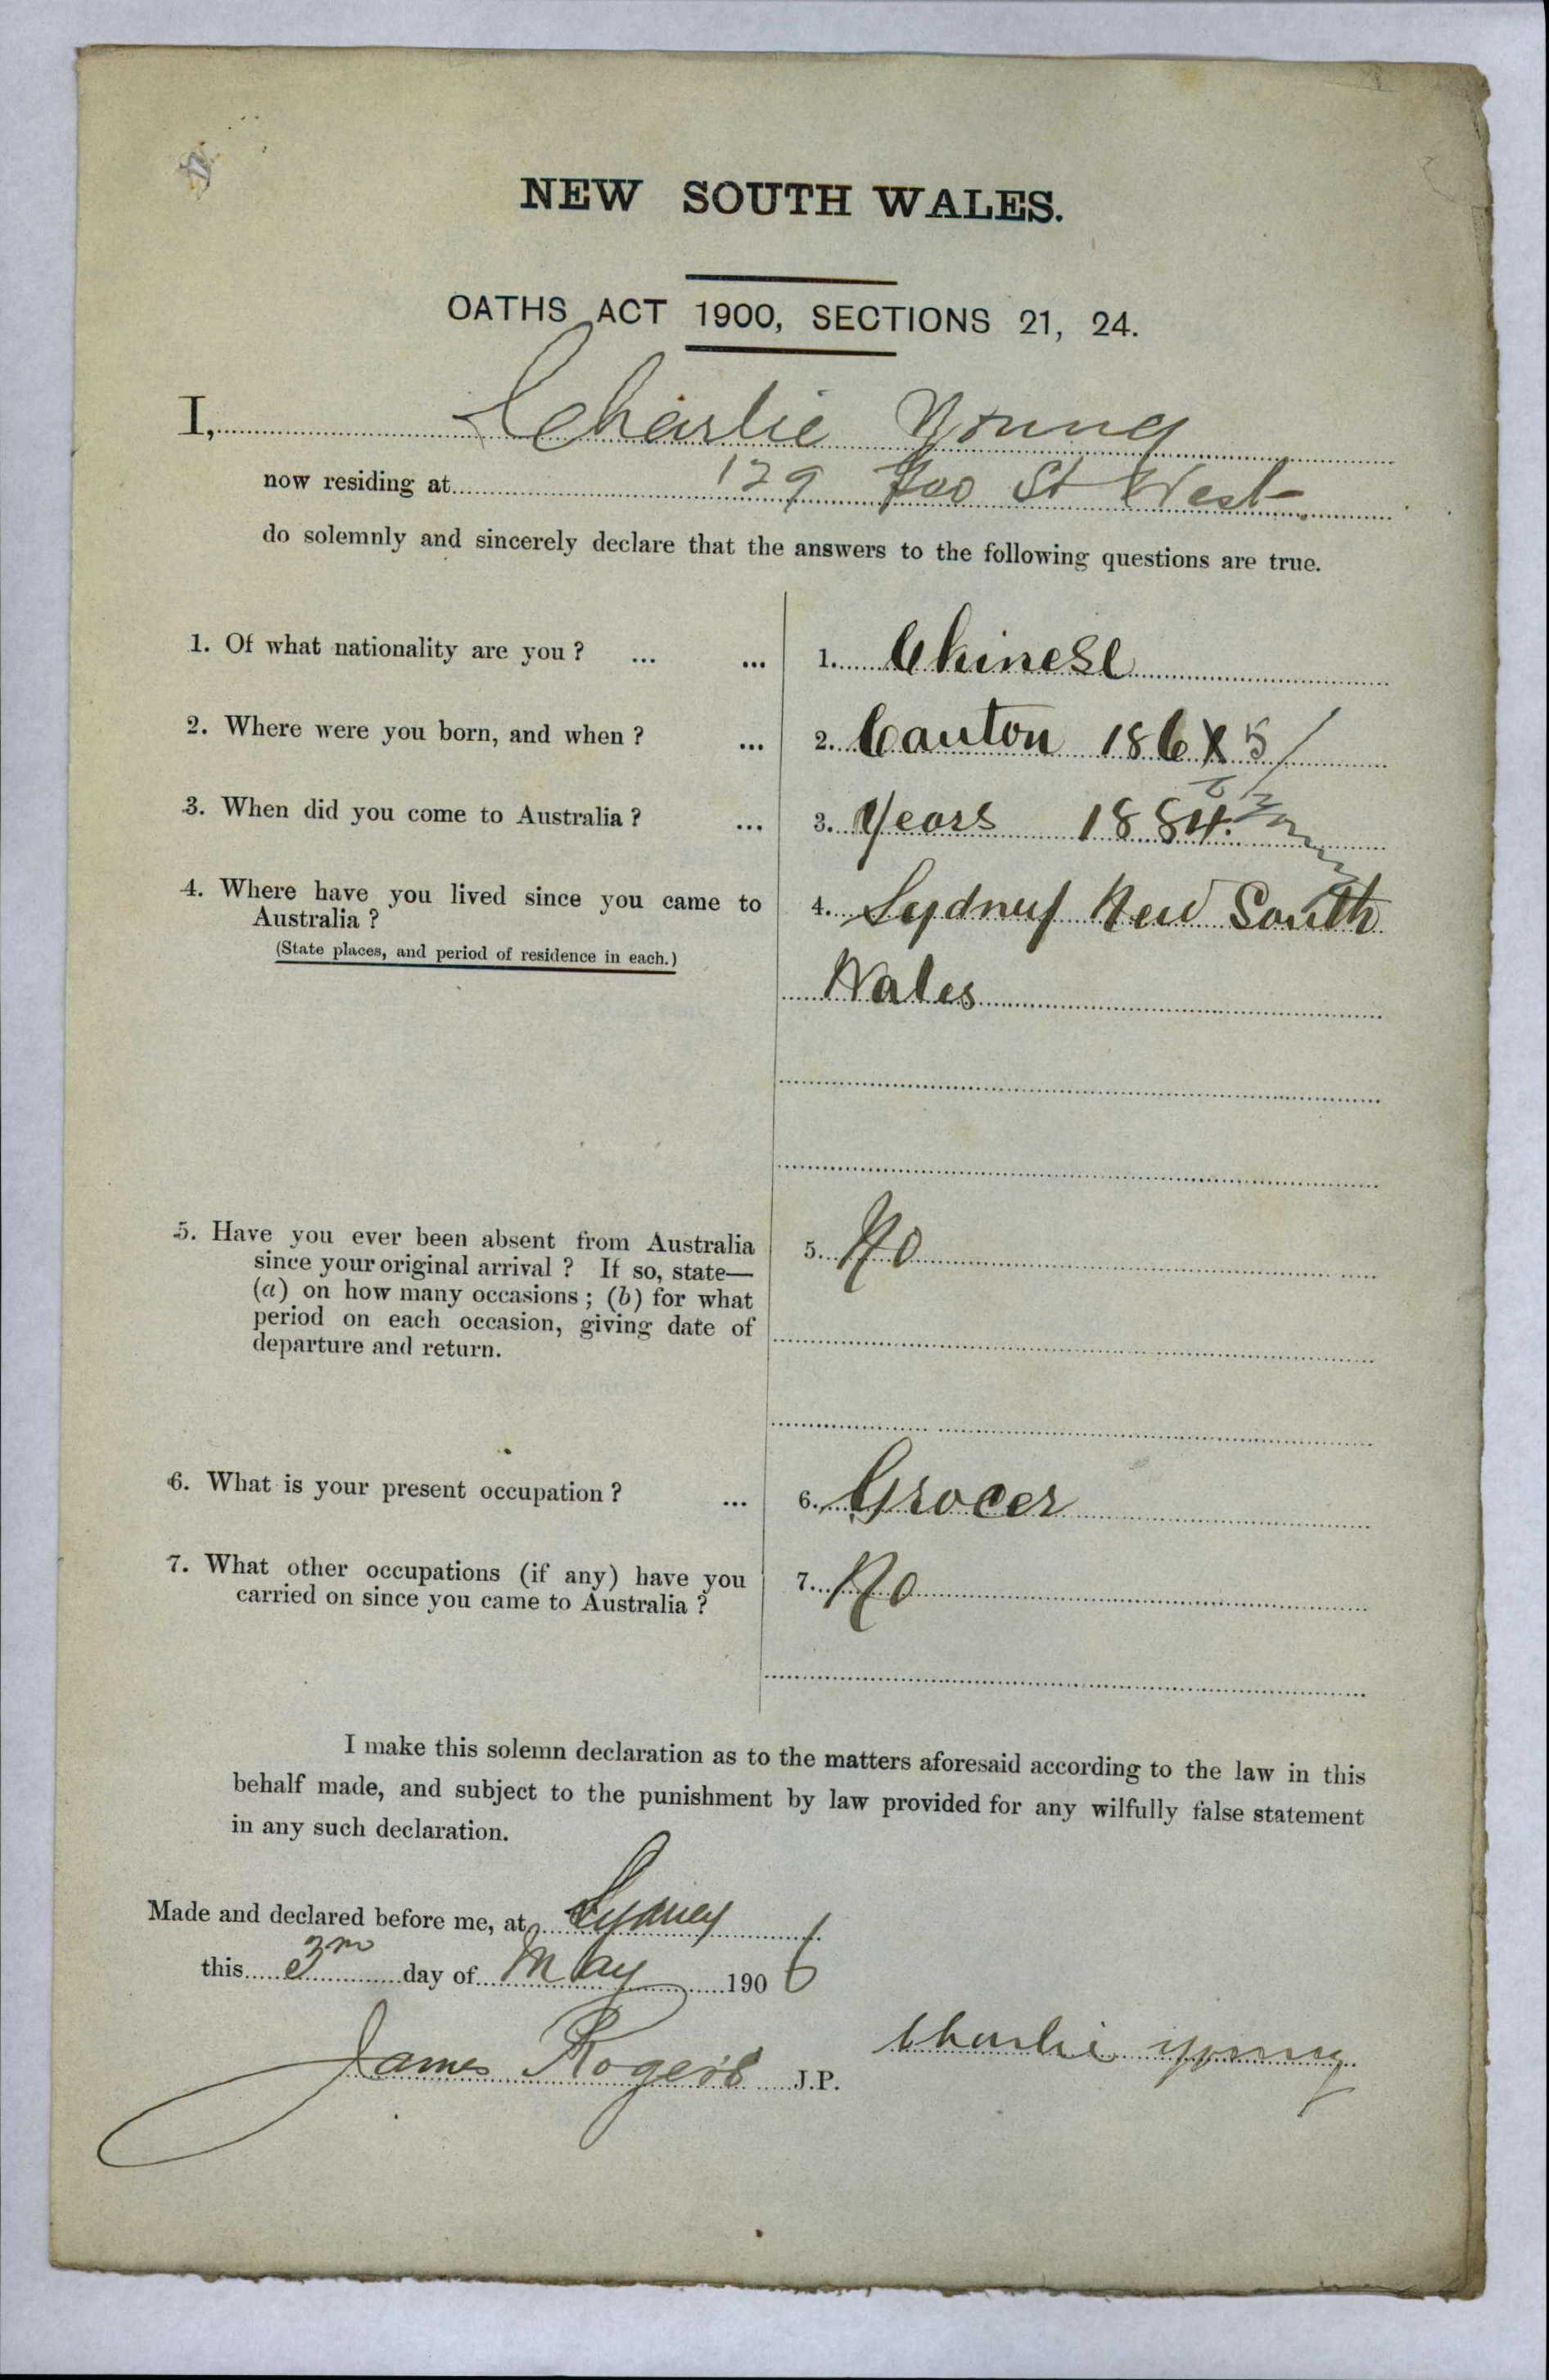 NEW SOUTH WALES.
OATHS ACT 1900, SECTIONS 21, 24.
I, Charlie Young
now residing at 129 Geo St West
do solemnly and sincerely declare that the answers to the following questions are true.
1. Of what nationality are you ? ... ... 1. Chinese
2. Where were you born, and when ? ... 2. Canton 186X 5/
3. When did you come to Australia ? ... 3. Years 1884.
4. Where have you lived since you came to 4. Sydney New South
Australia ?
(State places, and period of residence in each.)
Wales
5. Have you ever been absent from Australia 5. No
since your original arrival ? If so, state—
(a) on how many occasions ; (b) for what
period on each occasion, giving date of
departure and return.
6. What is your present occupation ? ... 6. Grocer
7. What other occupations (if any) have you 7. No
carried on since you came to Australia ?
I make this solemn declaration as to the matters aforesaid according to the law in this
behalf made, and subject to the punishment by law provided for any wilfully false statement
in any such declaration.
Made and declared before me, at Sydney
this 3rd day of May 1906
James Rogers J.P.
Charlie Young